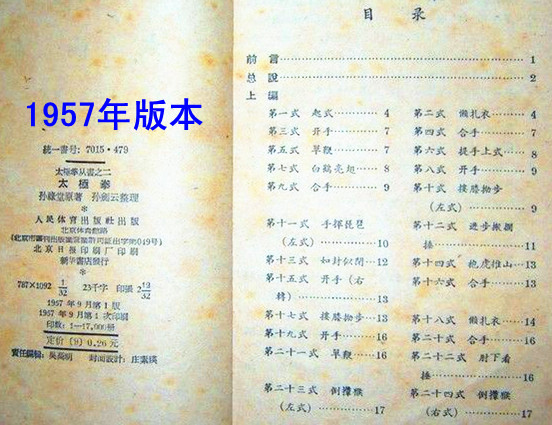 1957年版本
統一書号：7015·479
太極拳丛書之二
太極拳
孙祿堂原著 孙劍云整理
*
人民体育出版社出版
北京体育館路
(北京市書刊出版業營業許可証出字第049号)
北京日報印刷厂印刷
新华書店發行
*
787×1092 1/32 23千字 印張 2 12/32
1957年9月第1版
1957年9月第1次印刷
印数：1—17,000册
定价〔9〕0.26元
責任編輯：吳高明 封面設計：庄素瑛
目录
前言……1
总說……2
上編
第一式 起式……4
第二式 懶扎衣……4
第三式 开手……4
第四式 合手……4
第五式 單鞭……4
第六式 提手上式……8
第七式 白鶴亮翅……8
第八式 开手……9
第九式 合手……9
第十式 摟膝拗步
(左式)……9
第十一式 手揮琵琶
(左式)……10
第十二式 进步搬攔
捶……11
第十三式 如封似閉……12
第十四式 抱虎推山……13
第十五式 开手（右
轉）……13
第十六式 合手……13
第十七式 摟膝拗步……13
第十八式 懶扎衣……14
第十九式 开手……16
第二十式 合手……16
第二十一式 單鞭……16
第二十二式 肘下看
捶……16
第二十三式 倒攆猴
(左式)……17
第二十四式 倒攆猴
(右式)……17